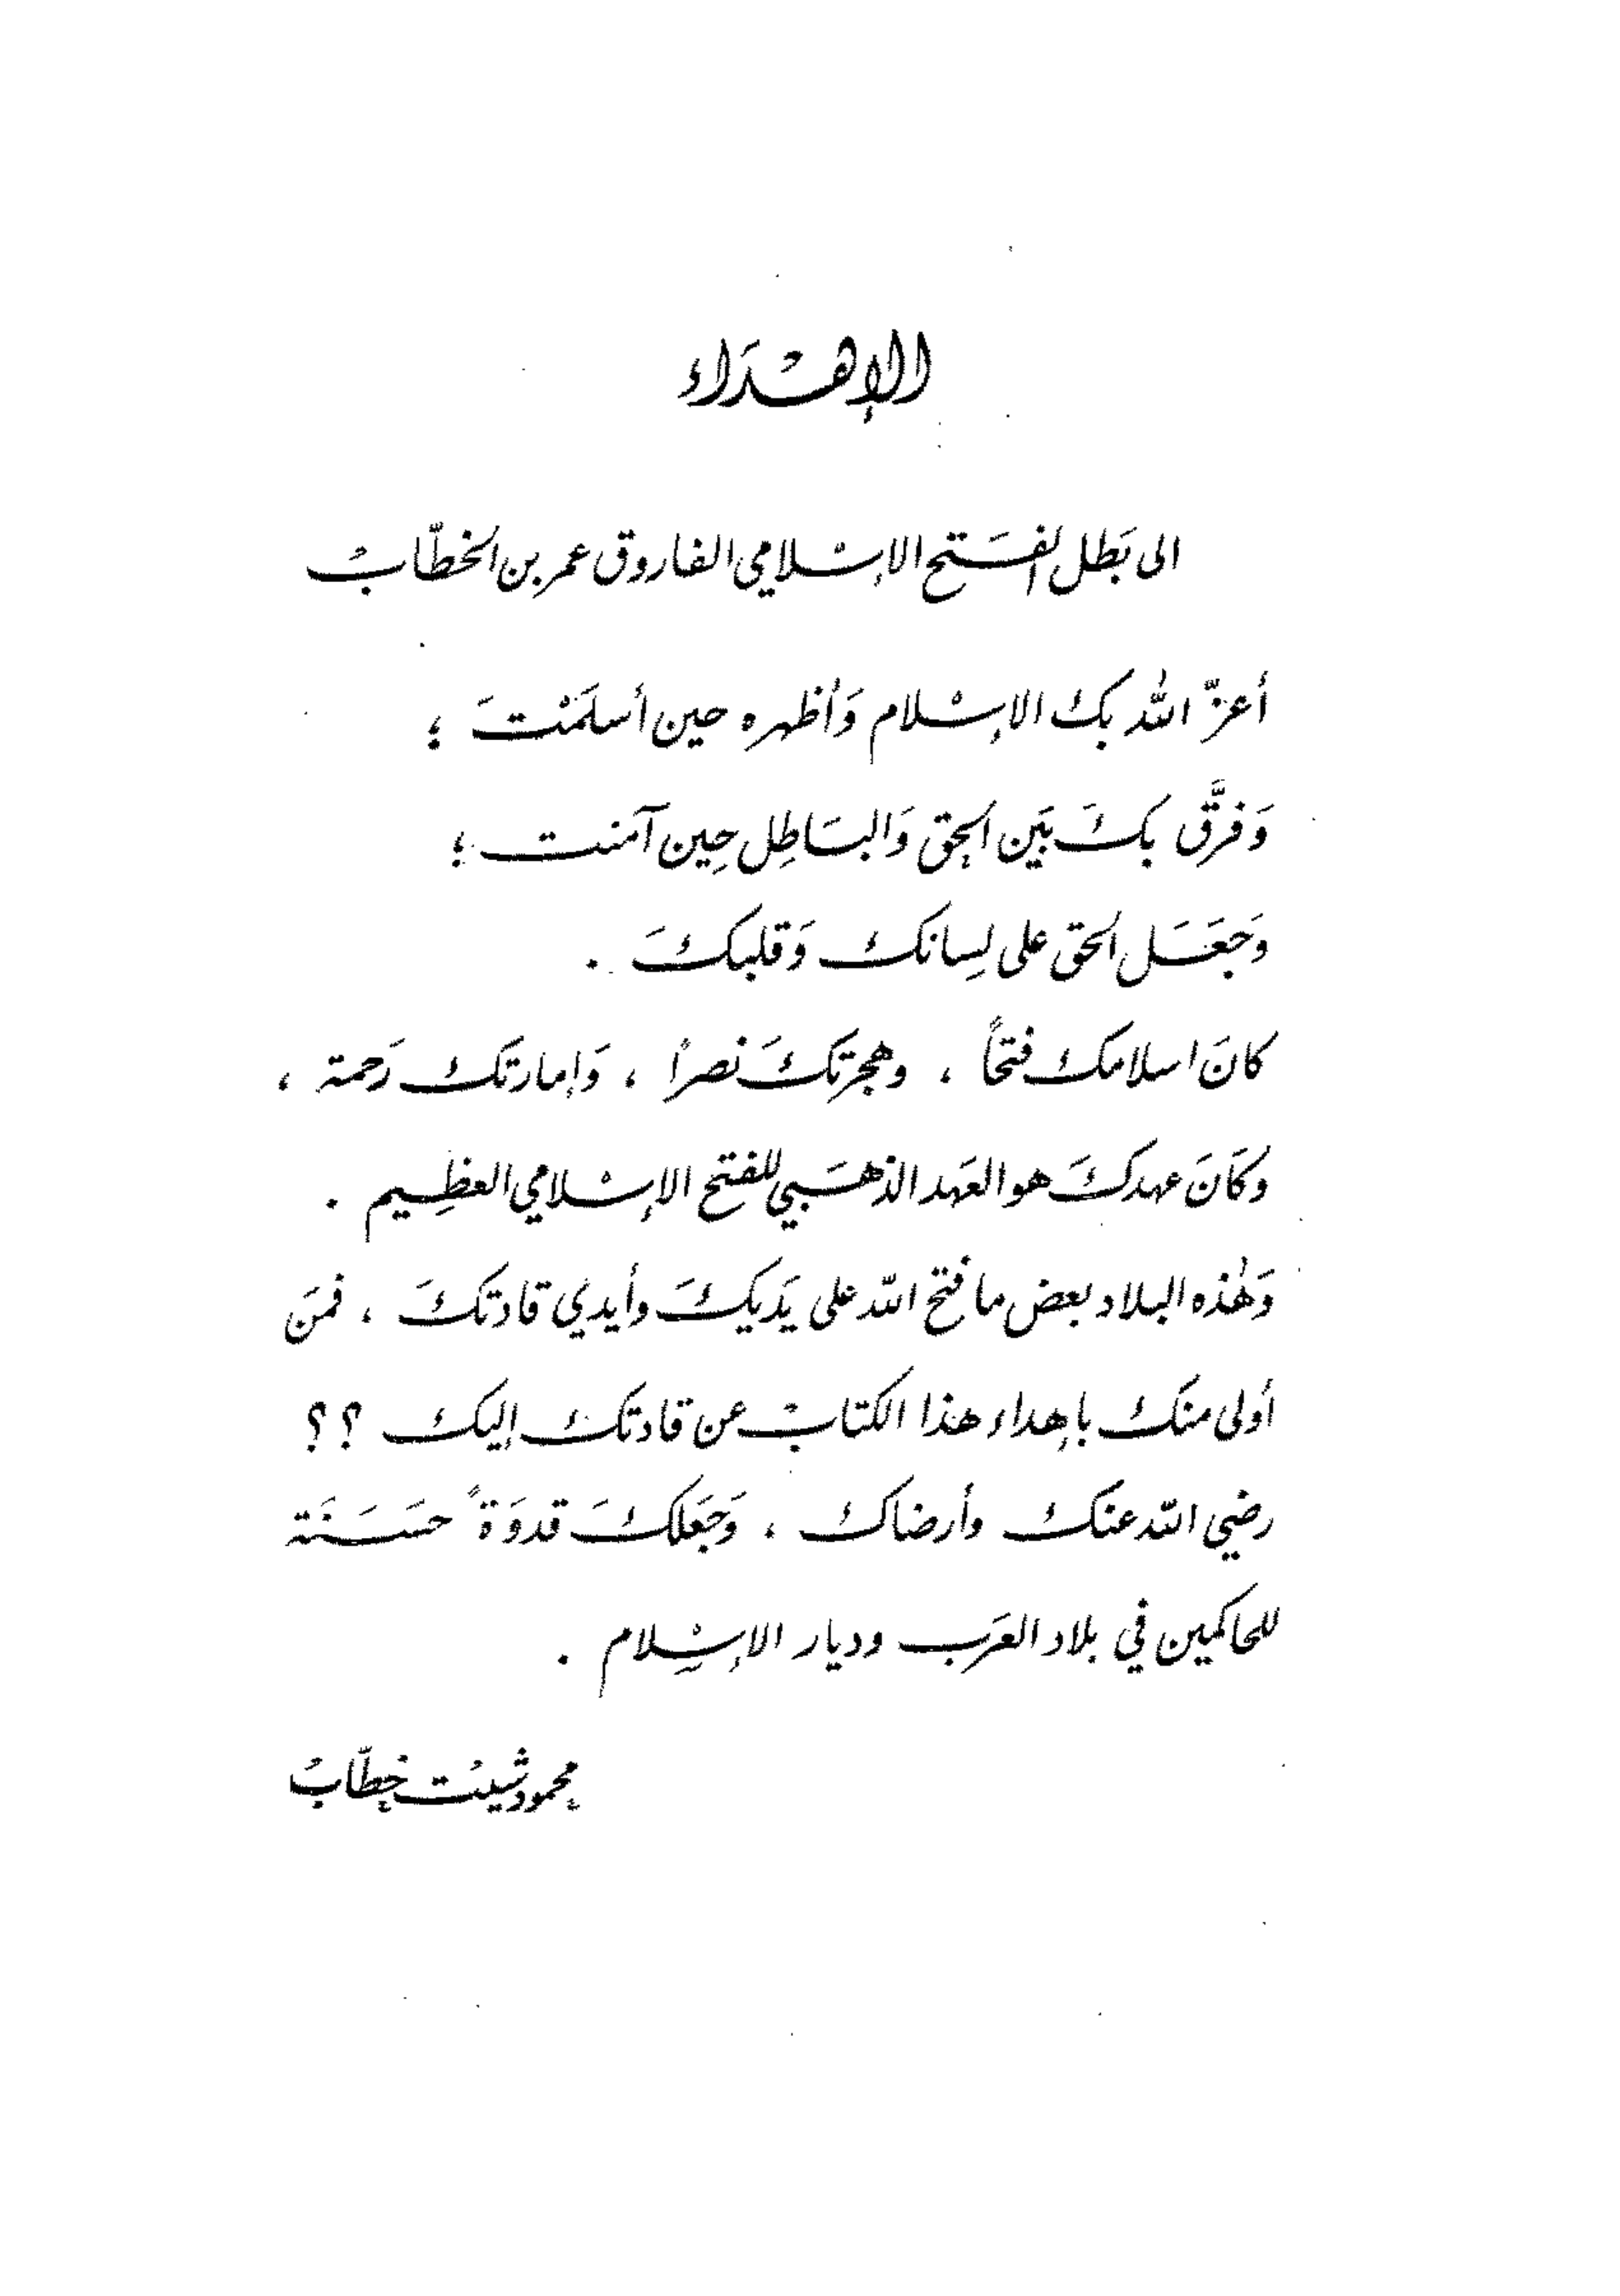 الإهْدَاء
الى بَطل الفَتح الإسْلامي الفاروق عمر بن الخطّاب
أعزّ الله بك الإسْلام وَأظهره حين أسلَمْتَ ؛
وَفرَّق بكَ بَين الحق وَالبَاطِل حِين آمنت ؛
وَجَعَل الحق على لِسانك وَقلبكَ .
كانَ اسلامك فتحًا ، وهجرتكَ نصرًا ، وَإمارتك رَحمة ،
وَكانَ عهدكَ هو العَهد الذهَبي للفتح الإسْلامي العظِيم .
وَهٰذه البلاد بعض ما فتح الله على يَديكَ وأيدي قادتكَ ، فمَن
أولى منك بإهداء هذا الكتاب عن قادتك إليك ؟؟
رضي الله عنك وأرضاك ، وَجَعَلكَ قدوَةً حسَنَة
للحاكمين في بلاد العَرب وديار الإسْلام .
محمود شيت خطّاب